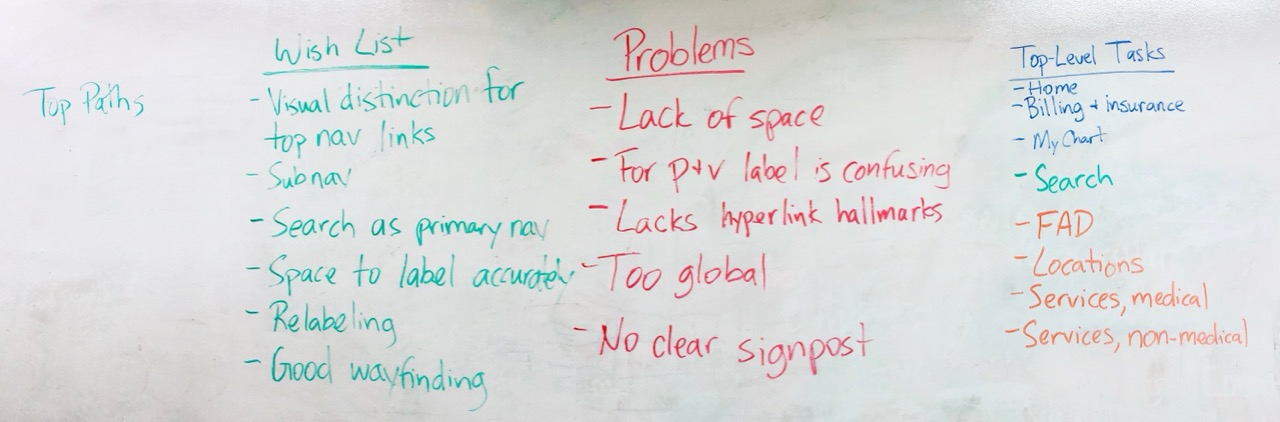 Top Paths
Wish List
- Visual distinction for
top nav links
- Subnav
- Search as primary nav
- Space to label accurately
- Relabeling
- Good wayfinding
Problems
- Lack of space
- For p+v label is confusing
- Lacks hyperlink hallmarks
- Too global
- No clear signpost
Top-Level Tasks
- Home
- Billing + insurance
- MyChart
- Search
- FAD
- Locations
- Services, medical
- Services, non-medical